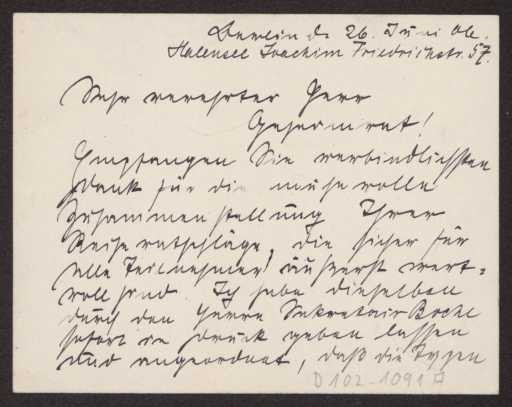 Berlin d. 26. Juni 06.
Halensee Joachim Friedrichstr. 57.
Sehr verehrter Herr
Geheimrat!
Empfangen Sie verbindlichsten
Dank für die mühevolle
Zusammenstellung Ihrer
Reiseratschläge, die sicher für
alle Teilnehmer äußerst wert-
voll sind. Ich habe dieselben
durch den Herrn Sekretair
sofort in Druck geben lassen
und angeordnet, daß die Typen
D 102-1091 A